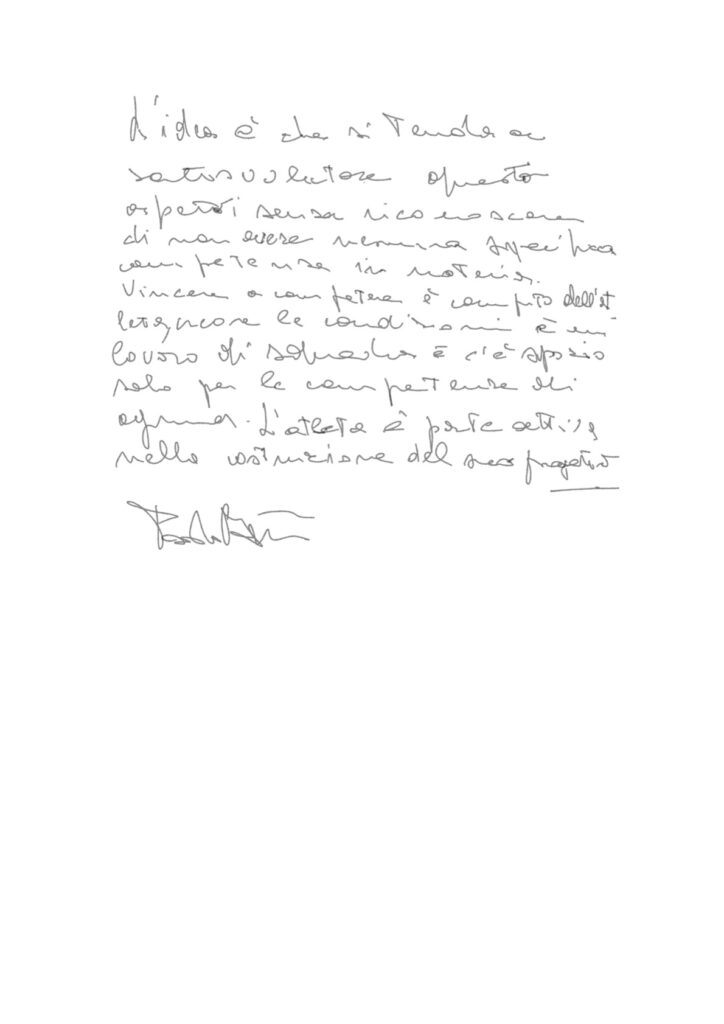 L'idea è che si tenda a
sottovalutare questo
aspetti senza riconoscere
di non avere nessuna specifica
competenza in materia.
Vincere o competere è compito dell'at
leta, creare le condizioni è un
lavoro di squadra e c'è spazio
solo per le competenze di
ognuno. L'atleta è parte attiva
nella costruzione del suo progetto